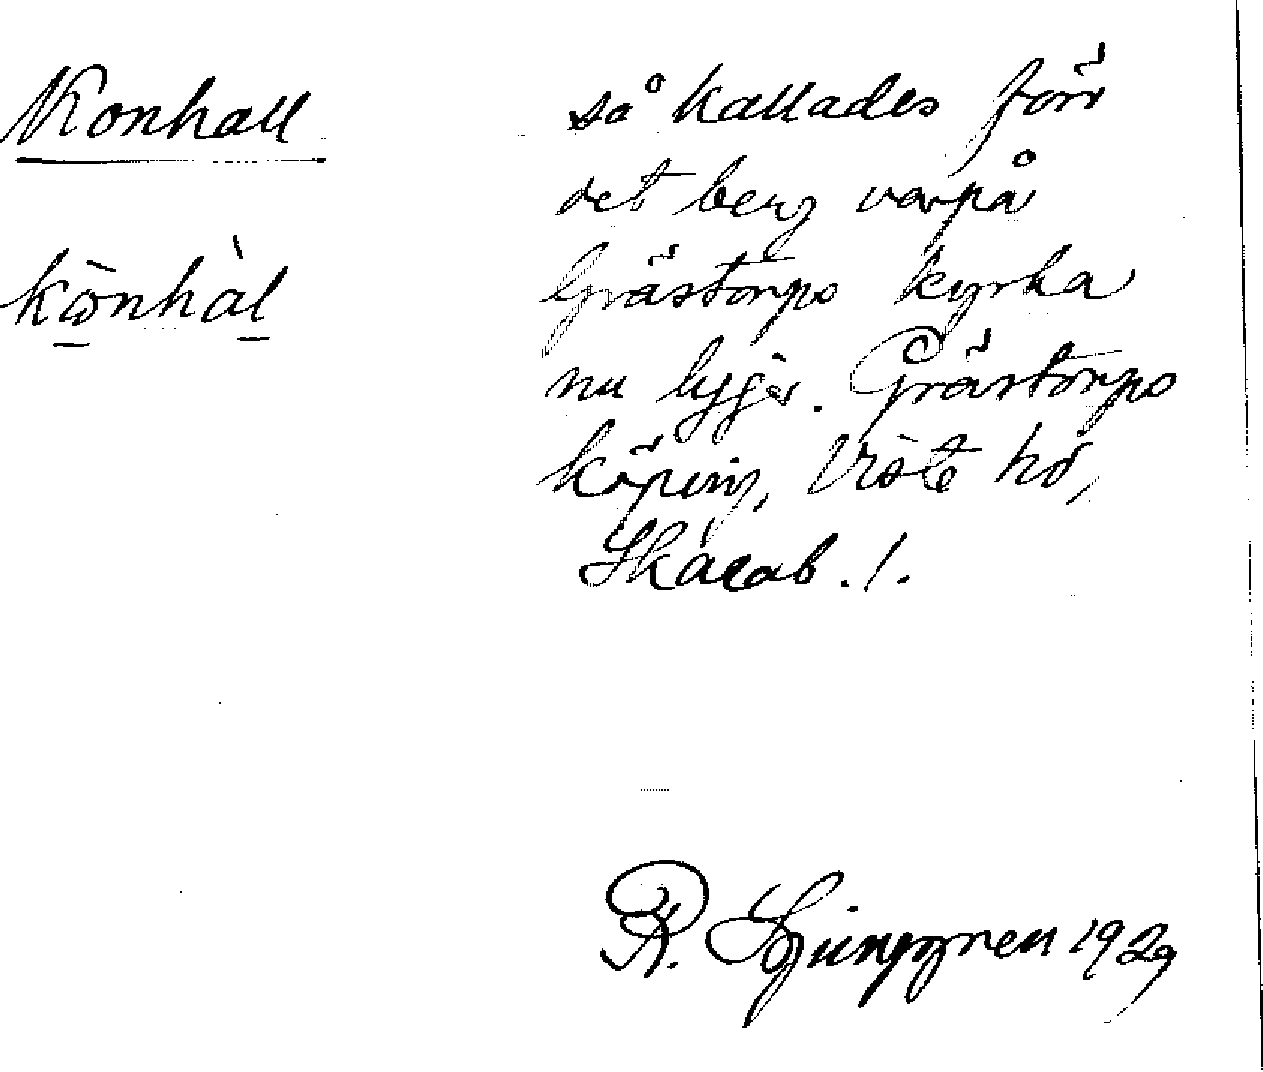 Konhall
kònhàl
så kallades förr
det berg varpå
Grästorps kyrka
nu ligger. Grästorps
köping, Viste hd,
Skarab. l.
R. Ljunggren 1929